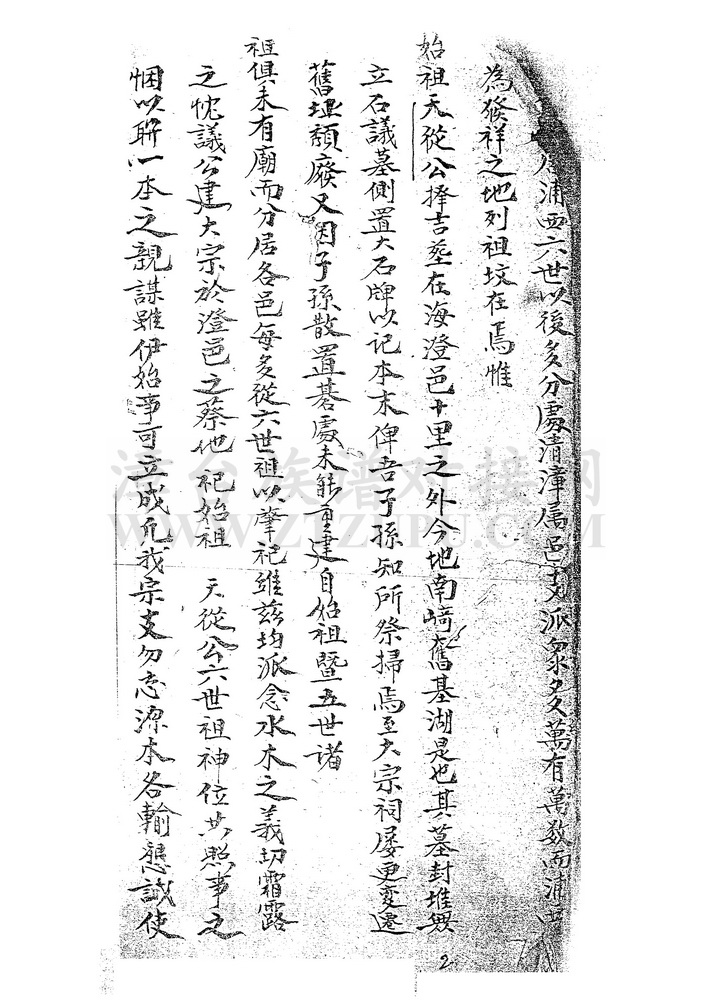 居浦西六世以後多分處清漳屬邑支派衆多萬有萬数而浦西
為發祥之地列祖坟在焉惟
始祖天從公擇吉塟在海澄邑十里之外今地南﨑舊基湖是也其墓封堆無
立石議墓側置大石牌以记本末俾吾子孫知所祭掃焉至大宗祠屡更变遷
舊堙頹廢又因子孫散置碁處未能重建自始祖暨五世諸
祖俱未有廟而分居各邑每多從六世祖以肇祀維兹均派念水木之義切霜露
之忱議公建大宗於澄邑之蔡他祀始祖 天從公六世祖神位共照事之
悃以聨一本之親謀雖伊始事可立成凢我宗支勿忘源本各輸懇誠使
2
漳台族谱对接网
WWW.ZTZUPU.COM